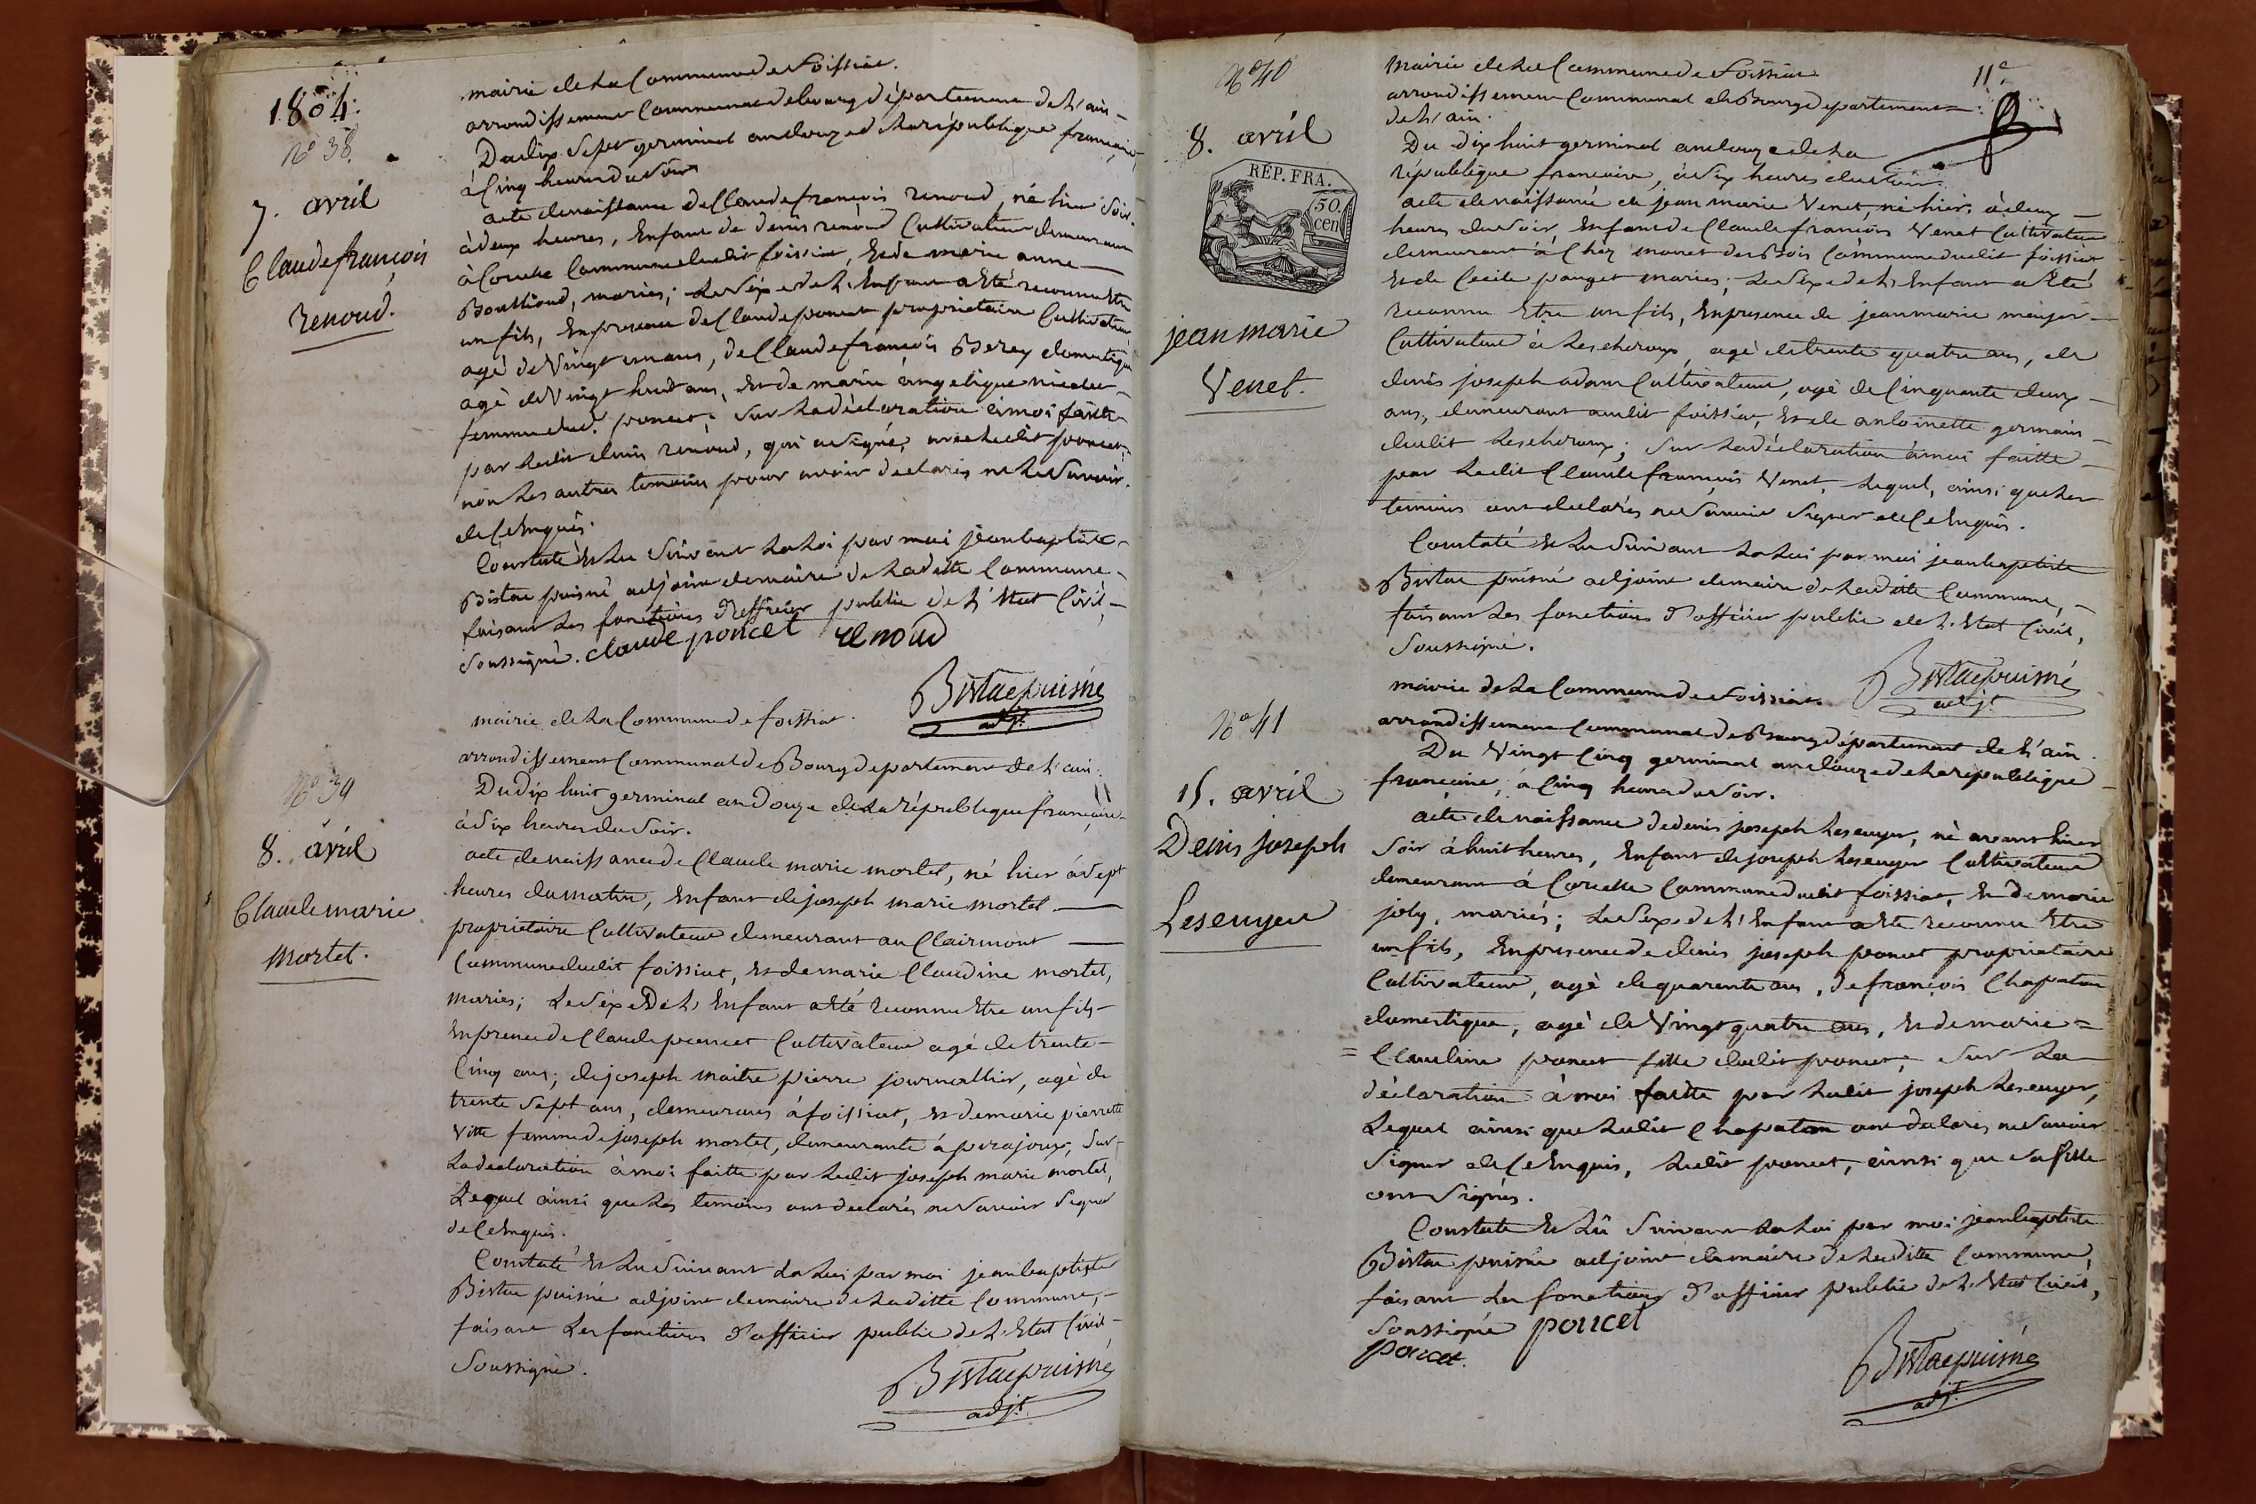 1804.
N° 38.
7. avril
Claude françois
Renoud.
mairie de la Commune de foissiat.
arrondissement Communal de bourg département de l'ain
Du dix Sept germinal an douze de la république française
à Cinq heures du Soir
acte de naissance de Claude françois renoud, né hier Soir
à deux heures, Enfant de denis renoud Cultivateur demeurant
à Commune dudit foissiat, Et de marie anne
mariés; Le Séxe de L'Enfant a Eté reconnu Etre
un fils, En présence de Claude poncet propriétaire Cultivateur
agé de Vingt un ans, de Claude françois Berey domestique
agé de Vingt huit ans, Et de marie angelique
femme dud. poncet; Sur La déclaration à moi faitte
par Ledit denis renoud, qui a Signé, avec Ledit poncet,
non Les autres temoins pour avoir declarés ne Le Savoir
de Ce Enquis.
Constaté Et Lu Suivant La Loi par moi jean baptiste
Bistac puisné adjoint du maire de Laditte Commune
faisant Les fonctions d'officier public de L'Etat Civil
Soussigné. claude poncet renoud
Bistac puisné
adjt.
N° 39
8. avril
Claude marie
Mortet.
mairie de La Commune de foissiat.
arrondissement Communal de Bourg departement de L'ain.
Du dix huit germinal an Douze de La république française
à Six heures du Soir.
acte de naissance de Claude marie mortet, né hier à Sept
heures du matin, Enfant de joseph marie mortet
propriétaire Cultivateur demeurant au Clairmont
Commune dudit foissiat, Et de marie Claudine mortet,
mariés; Le Séxe De L'Enfant a Eté reconnu Etre un fils
En présence de Claude poncet Cultivateur agé de trente
Cinq ans; de joseph maitre pierre journallier, agé de
trente Sept ans, demeurans à foissiat, Et de marie pierrette
Vitte femme de joseph mortet, demeurante à pirajoux, Sur
La declaration à moi faitte par Ledit joseph marie mortet,
Lequel ainsi que Les temoins ont declarés ne Savoir Signer
de Ce Enquis.
Constaté Et Lu Suivant La Loi par moi jean baptiste
Bistac puisné adjoint du maire de Laditte Commune,
faisant Les fonctions d'officier public de L'Etat Civil
Soussigné.
Bistac puisné
adjt.
11e
N° 40
8. avril
RÉP. FRA.
50.
cen
jean marie
Venet.
Mairie de La Commune de foissiat
arrondissement Communal de Bourg departement
de L'ain.
Du dix huit germinal an douze de La
république française, à Six heures du Soir.
acte de naissance de jean marie Venet, né hier à deux
heures du Soir, Enfant de Claude françois Venet Cultivateur
demeurant à Chez mouret des Bois Commune dudit foissiat
Et de Cecile pauget mariés; Le Séxe de L'Enfant a Eté
reconnu Etre un fils, En présence de jean marie
Cultivateur à Lescheroux, agé de trente quatre ans, de
denis joseph adam Cultivateur, agé de Cinquante deux
ans, demeurant audit foissiat, Et de antoinette germain
dudit Lescheroux; Sur La déclaration à moi faitte
par Ledit Claude françois Venet, Lequel, ainsi que Les
témoins ont declarés ne Savoir Signer de Ce Enquis.
Constaté Et Lu Suivant La Loi par moi jean baptiste
Bistac puisné adjoint du maire de Laditte Commune,
faisant Les fonctions d'officier public de L'Etat Civil,
Soussigné.
Bistac puisné
adjt.
N° 41
15. avril
Denis joseph
Lesenyeu
mairie de La Commune de foissiat.
arrondissement Communal de Bourg département de L'ain.
Du Vingt Cinq germinal an douze de La république
française, à Cinq heures du Soir.
acte de naissance de denis joseph né avant hier
Soir à huit heures, Enfant de joseph Cultivateur
demeurant à Commune dudit foissiat, Et de marie
joly, mariés; Le Séxe de L'Enfant a Eté reconnu Etre
un fils, En présence de denis joseph poncet propriétaire
Cultivateur, agé de quarente ans, de françois Chapatou
domestique, agé de Vingt quatre ans, Et de marie =
= Claudine poncet fille dudit poncet, Sur La
déclaration à moi faitte par Ledit joseph
Lequel ainsi que Ledit Chapatou ont déclarés ne Savoir
Signer de Ce Enquis, Ledit poncet, ainsi que Sa fille
ont Signés.
Constaté Et Lû Suivant La Loi par moi jean baptiste
Bistac puisné adjoint du maire de Laditte Commune,
faisant Les fonctions d'officier public de L'Etat Civil,
Soussigné poncet
poncet.
Bistac puisné
adjt.